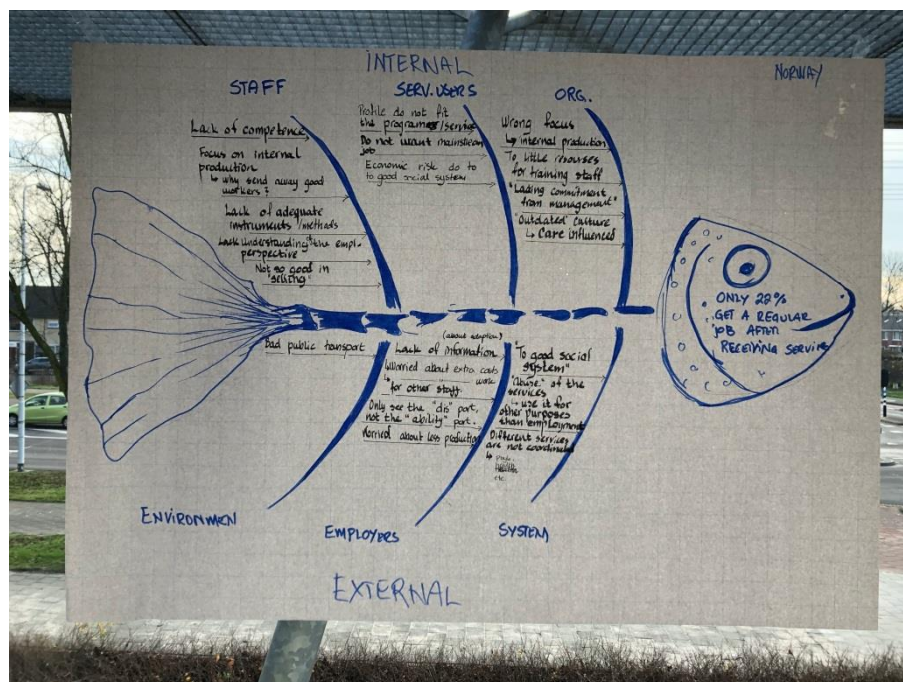 INTERNAL
NORWAY
STAFF
SERV. USERS
ORG.
Lack of competence
Focus on internal
production
↳ why send away good
workers?
Lack of adequate
instruments/methods
Lack understanding "the empl-
perspective"
Not so good in
"selling"
Profile do not fit
the programes/service
Do not want mainstream
job
Economic risk do to
to good social system
Wrong focus
↳ internal production
To little resourses
for training staff
"Lacking commitment
from management"
"Outdated" culture
↳ Care influenced
ONLY 22%
GET A REGULAR
JOB AFTER
RECEIVING SERVICE
Bad public transport
(about adaption)
Lack of information
Worried about extra costs
↳ work
for other staff
Only see the "dis" part,
not the "ability" part.
Worried about less production
"To good social
system"
"Abuse" of the
services
↳ use it for
other purposes
than employment
Different services
are not coordinated
↳
health
etc.
ENVIRONMEN
EMPLOYERS
SYSTEM
EXTERNAL